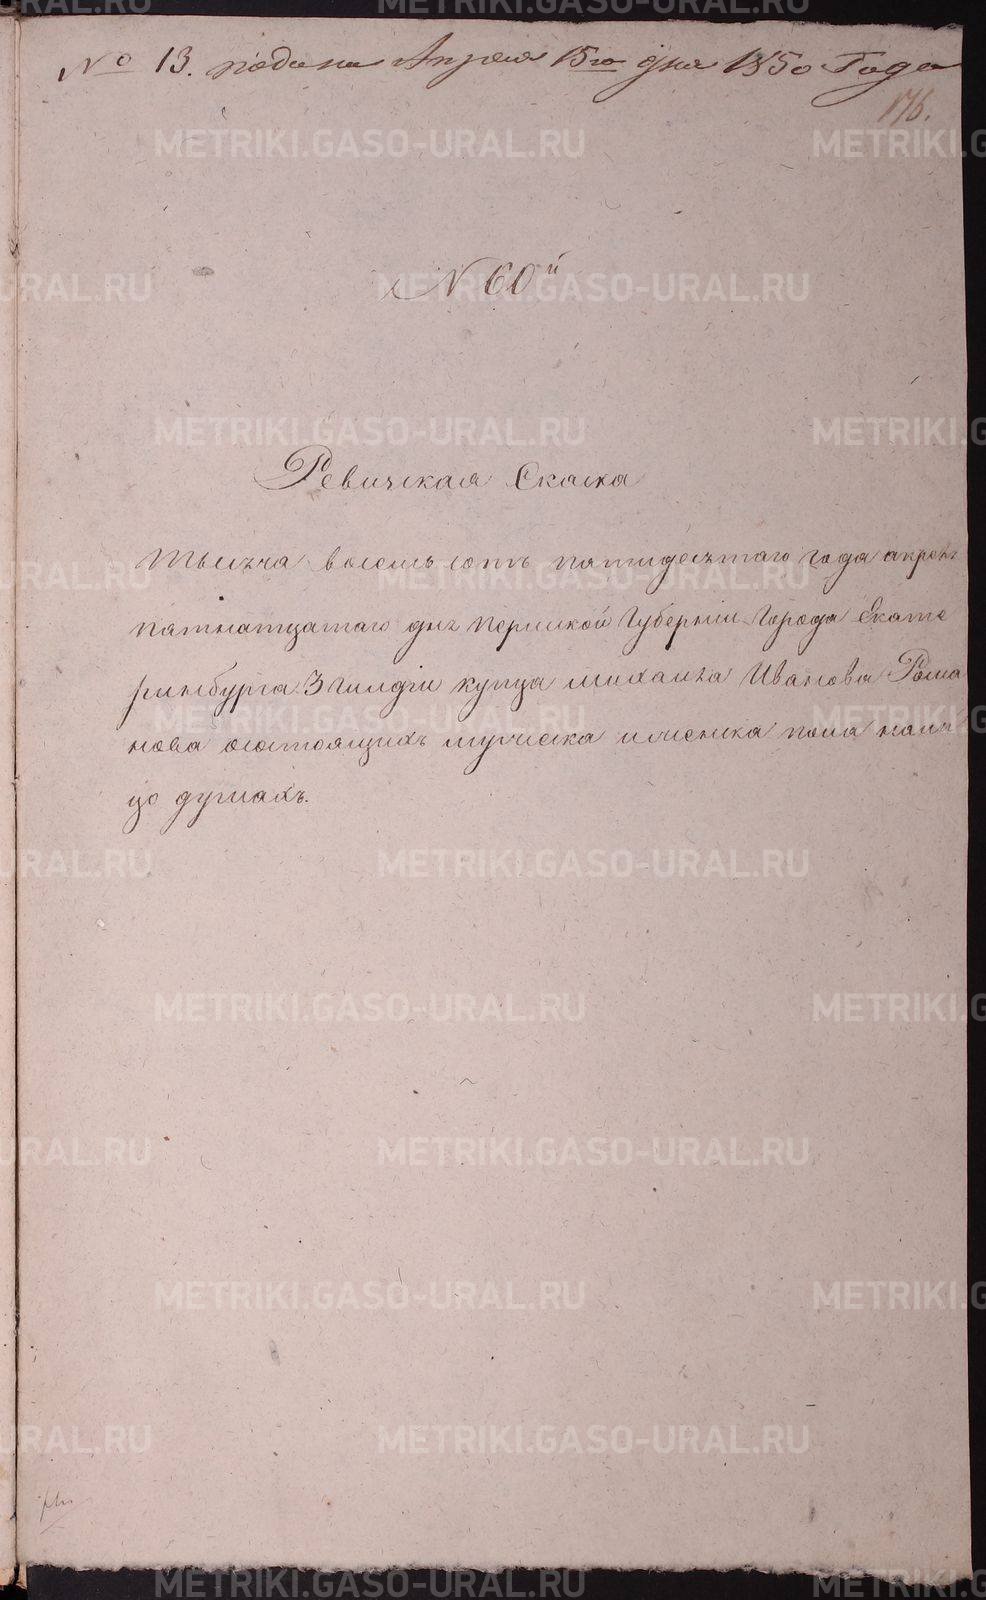 № 13. подана Апреля 15го дня 1850 Года
176.
N 60й
Ревиская Скаска
Тысяча восемь сотъ пятидесятаго года апреля
пятнатцатаго дня Пермской Губернии Города Екате
ринбурга 3 гилдии купца Михаила Иванова Рома
нова осостоящихъ мужеска иженска пола нали
цо душахъ.
METRIKI.GASO-URAL.RU